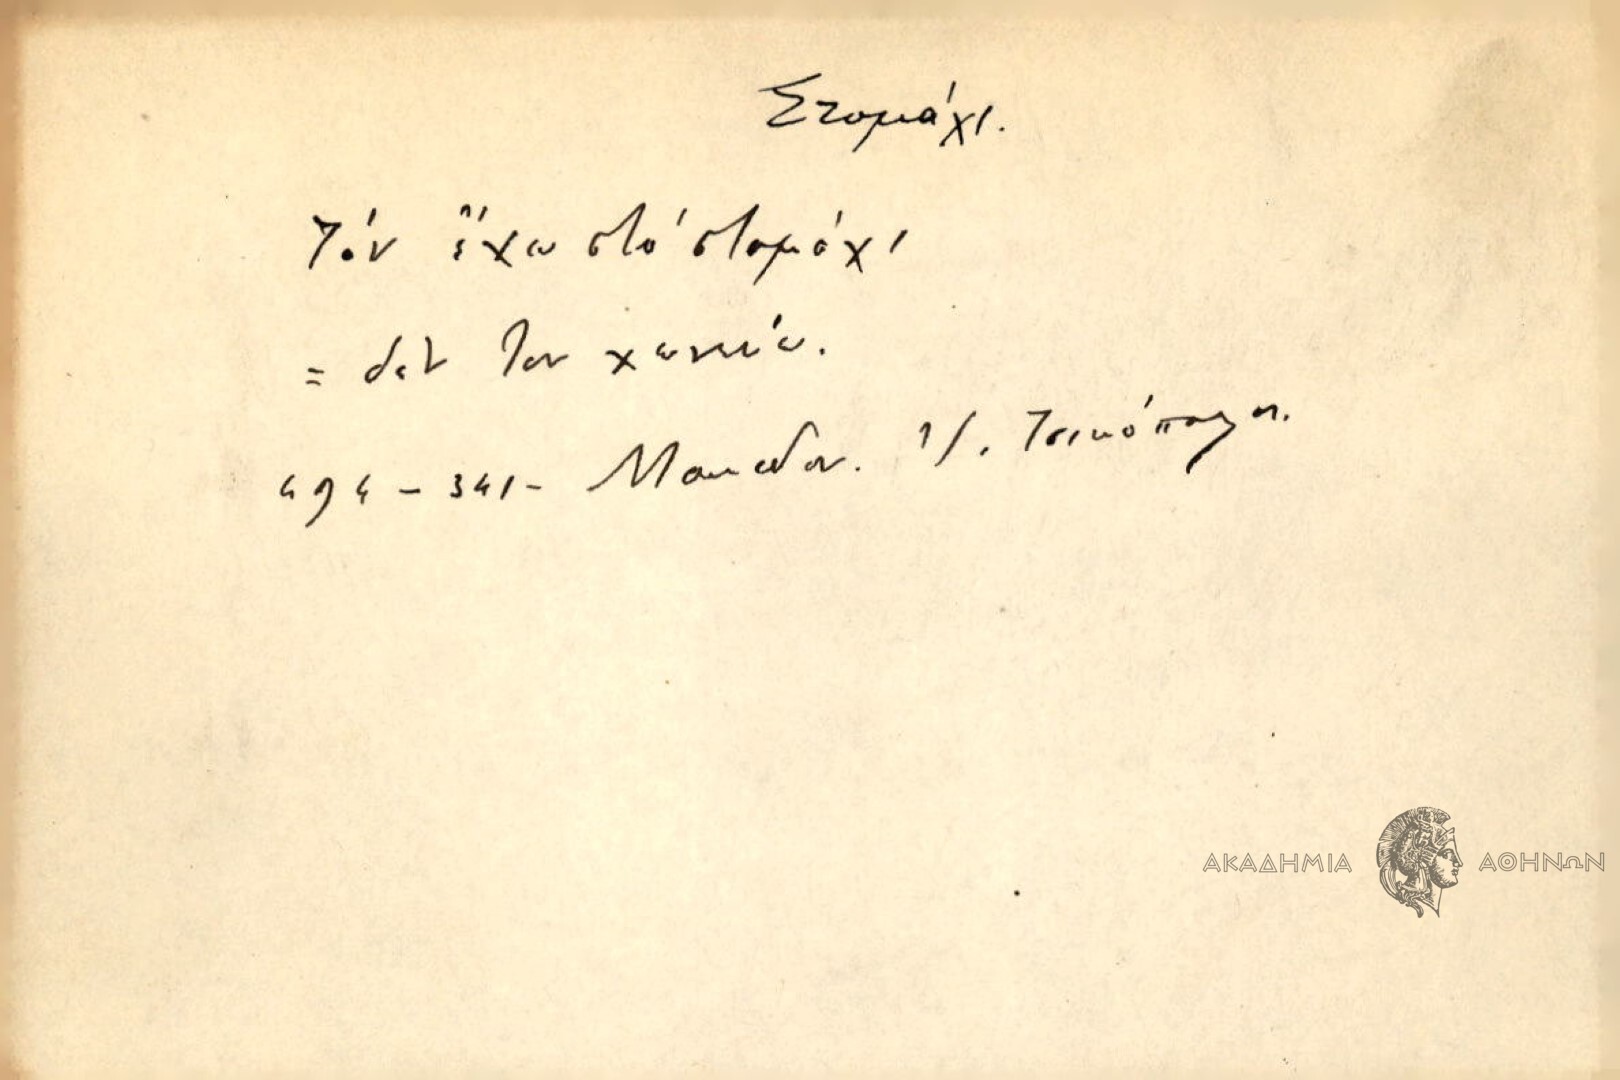 Στομάχι.
Τόν ἔχω στό στομάχι
= δεν τον χωνεύω.
494 - 341 - Μακεδον. Ἰ. Τσικόπουλ.
ΑΚΑΔΗΜΙΑ ΑΘΗΝΩΝ